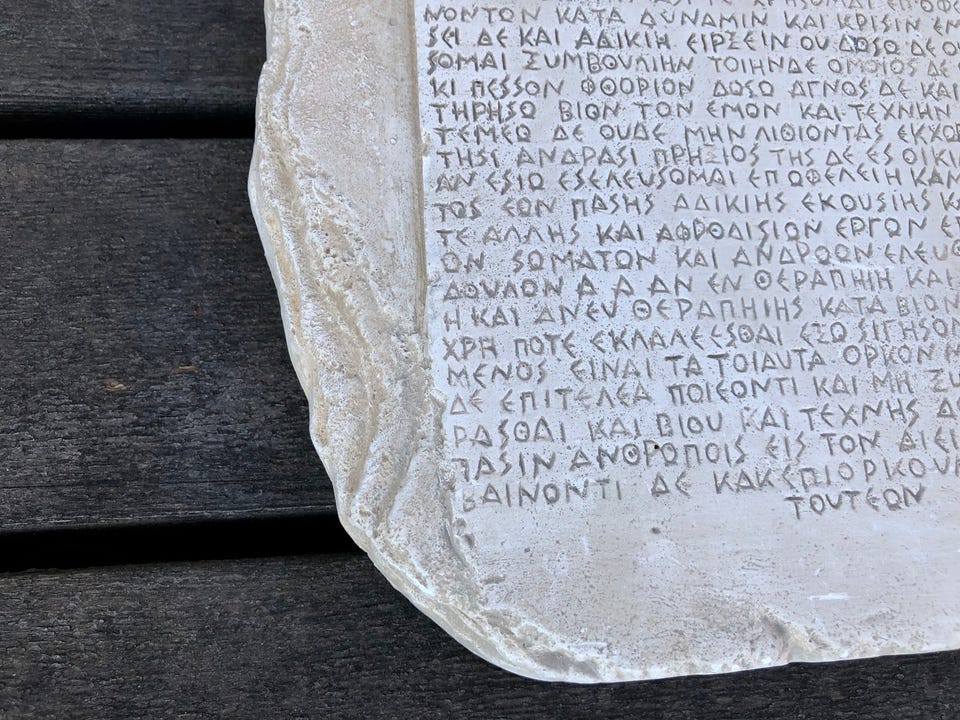 ΝΟΝΤΩΝ ΚΑΤΑ ΔΥΝΑΜΙΝ ΚΑΙ ΚΡΙΣΙΝ
ΣΕΙ ΔΕ ΚΑΙ ΑΔΙΚΙΗ ΕΙΡΞΕΙΝ ΟΥ ΔΩΣΩ ΔΕ
ΣΟΜΑΙ ΞΥΜΒΟΥΛΙΗΝ ΤΟΙΗΝΔΕ ΟΜΟΙΩΣ ΔΕ
ΚΙ ΠΕΣΣΟΝ ΦΘΟΡΙΟΝ ΔΩΣΩ ΑΓΝΩΣ ΔΕ ΚΑΙ
ΤΗΡΗΣΩ ΒΙΟΝ ΤΟΝ ΕΜΟΝ ΚΑΙ ΤΕΧΝΗΝ
ΤΕΜΕΩ ΔΕ ΟΥΔΕ ΜΗΝ ΛΙΘΙΩΝΤΑΣ ΕΚΧΩΡ
ΤΗΣΙ ΑΝΔΡΑΣΙ ΠΡΗΞΙΟΣ ΤΗΣ ΔΕ ΕΣ ΟΙΚΙ
ΑΝ ΕΣΙΩ ΕΣΕΛΕΥΣΟΜΑΙ ΕΠ ΩΦΕΛΕΙΗ ΚΑΜ
ΤΟΣ ΕΩΝ ΠΑΣΗΣ ΑΔΙΚΙΗΣ ΕΚΟΥΣΙΗΣ Κ
ΤΕ ΑΛΛΗΣ ΚΑΙ ΑΦΡΟΔΙΣΙΩΝ ΕΡΓΩΝ Ε
ΩΝ ΣΩΜΑΤΩΝ ΚΑΙ ΑΝΔΡΩΩΝ ΕΛΕΥΘ
ΔΟΥΛΩΝ Α Δ ΑΝ ΕΝ ΘΕΡΑΠΗΙΗ ΚΑΙ
Η ΚΑΙ ΑΝΕΥ ΘΕΡΑΠΗΙΗΣ ΚΑΤΑ ΒΙΟΝ
ΧΡΗ ΠΟΤΕ ΕΚΛΑΛΕΕΣΘΑΙ ΕΞΩ ΣΙΓΗΣΟΜ
ΜΕΝΟΣ ΕΙΝΑΙ ΤΑ ΤΟΙΑΥΤΑ ΟΡΚΟΝ
ΔΕ ΕΠΙΤΕΛΕΑ ΠΟΙΕΟΝΤΙ ΚΑΙ ΜΗ ΞΥ
ΡΑΣΘΑΙ ΚΑΙ ΒΙΟΥ ΚΑΙ ΤΕΧΝΗΣ ΔΟ
ΠΑΣΙΝ ΑΝΘΡΩΠΟΙΣ ΕΙΣ ΤΟΝ ΑΙΕΙ
ΒΑΙΝΟΝΤΙ ΔΕ ΚΑΚ ΕΠΙΟΡΚΟΥ
ΤΟΥΤΕΩΝ